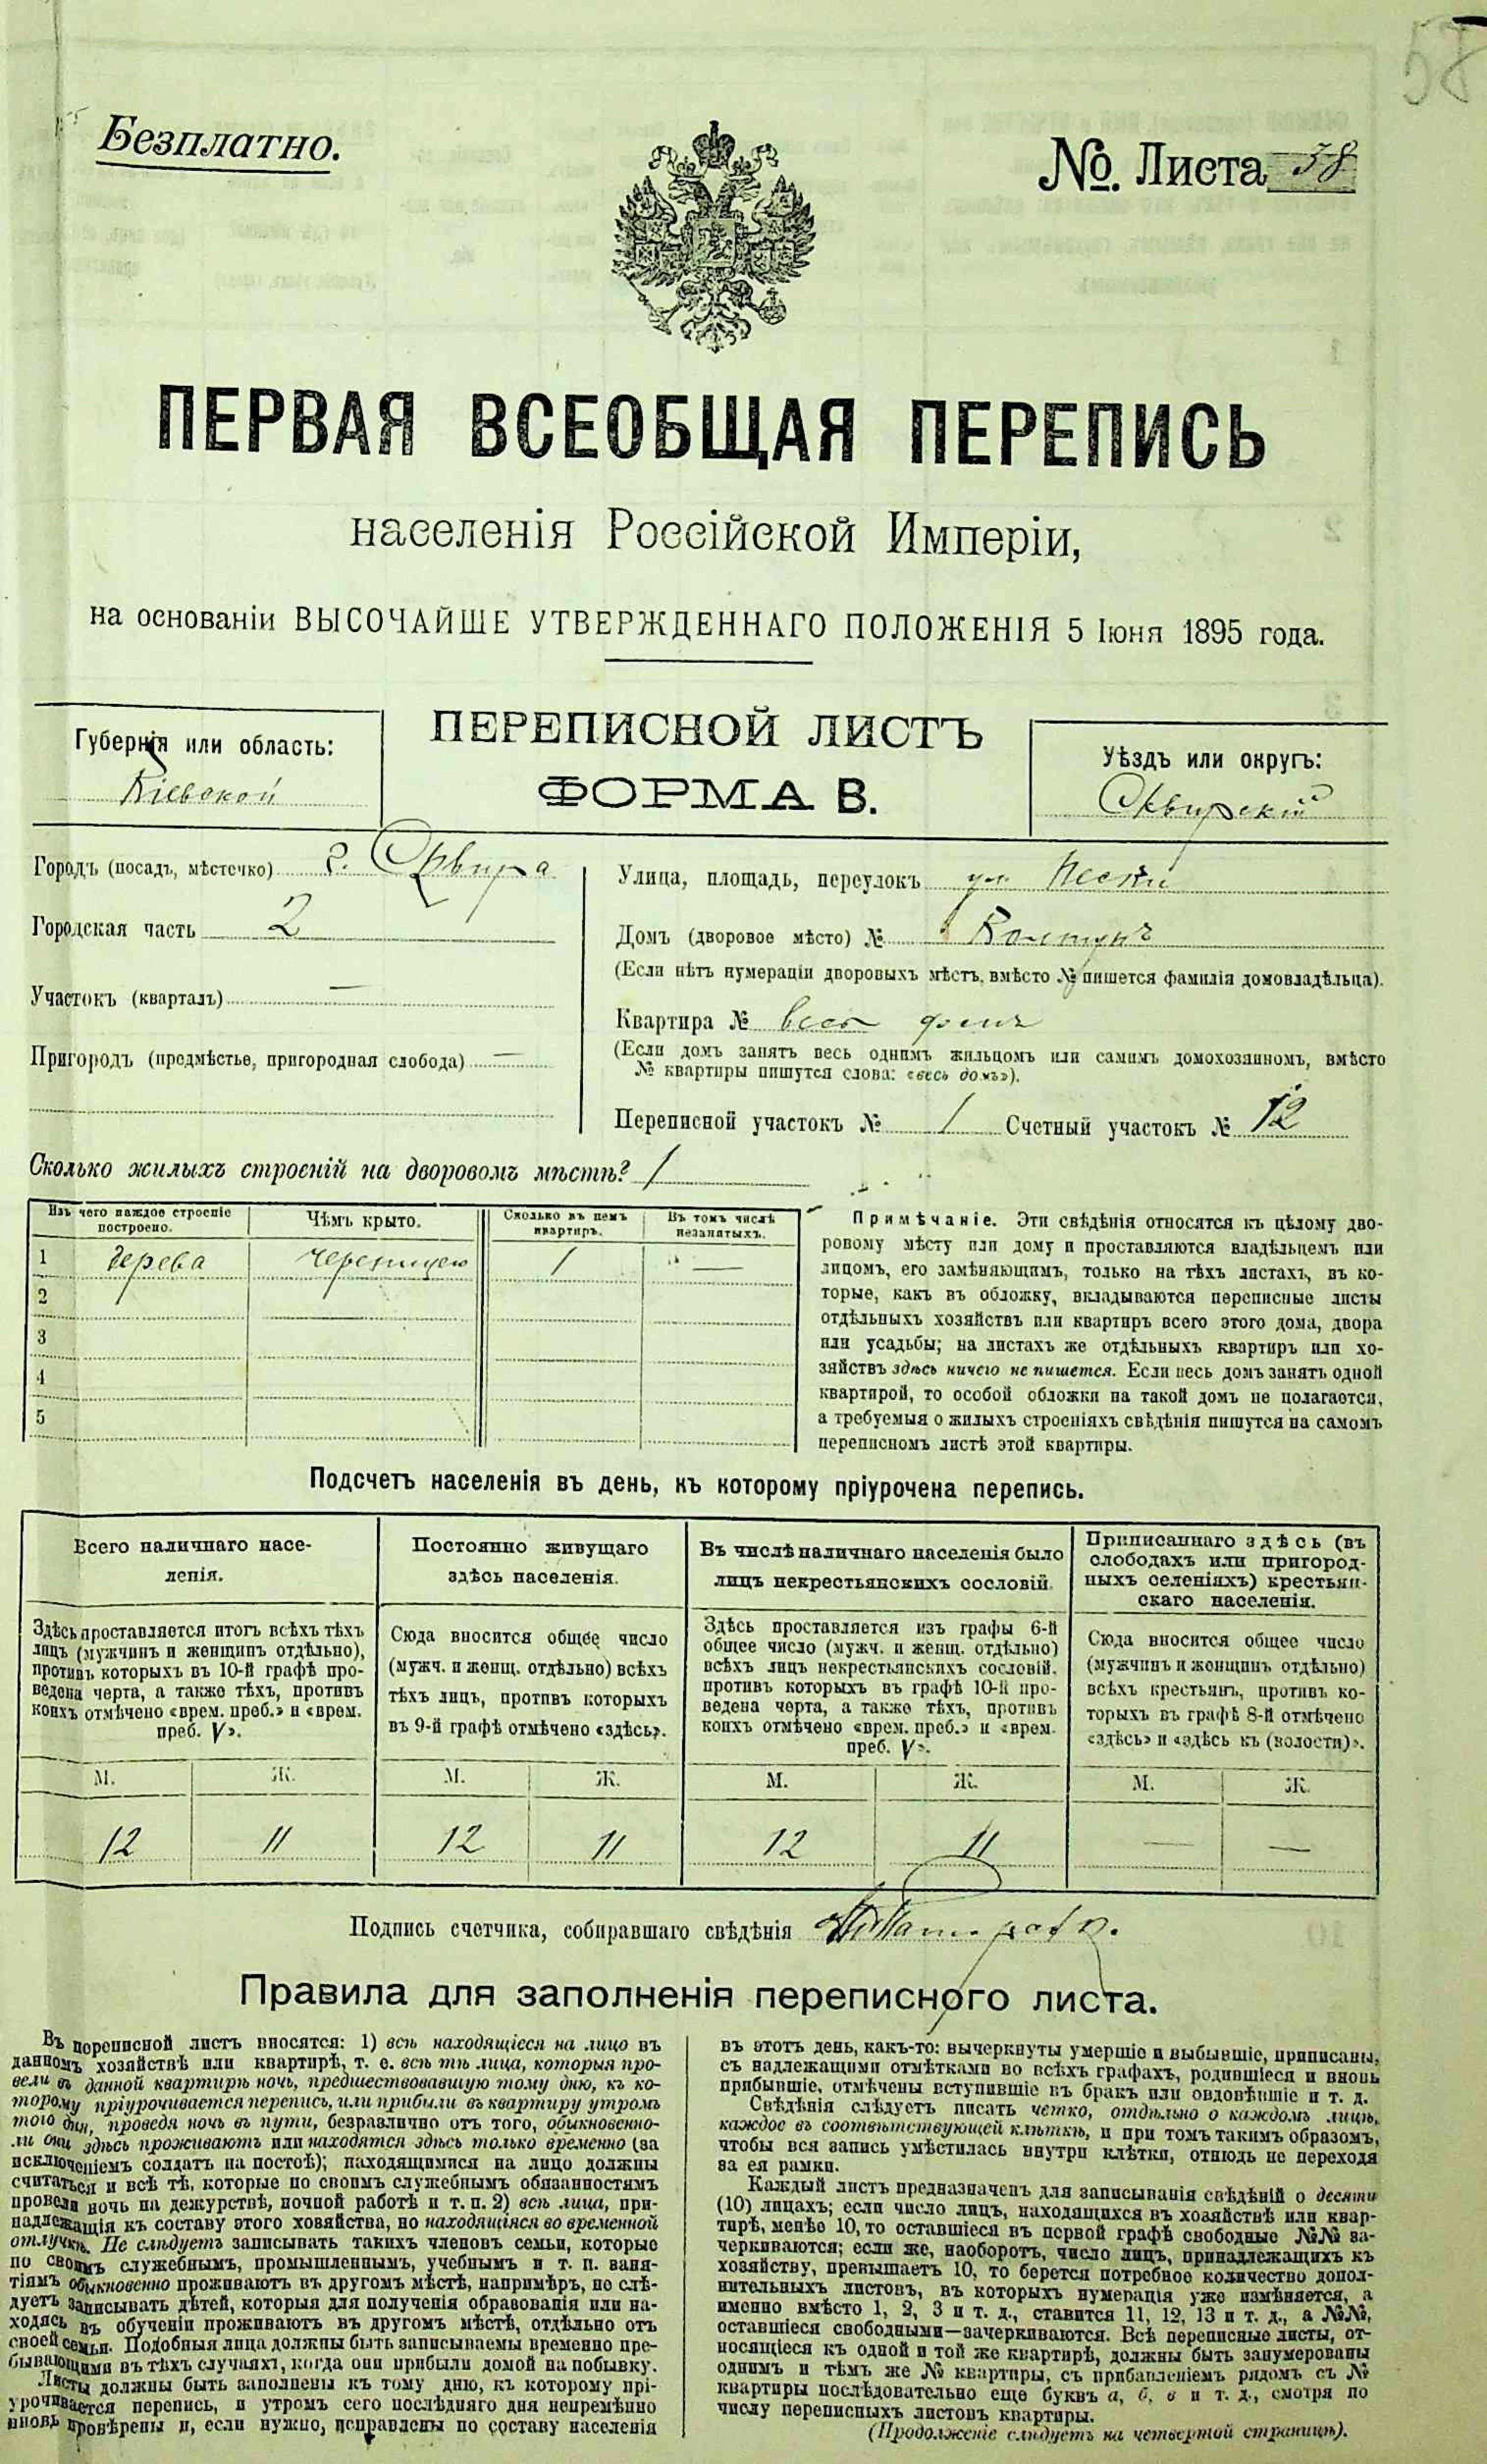 58
Безплатно.
№. Листа 38
ПЕРВАЯ ВСЕОБЩАЯ ПЕРЕПИСЬ
населенія Россійской Имперіи,
на основаніи ВЫСОЧАЙШЕ УТВЕРЖДЕННАГО ПОЛОЖЕНІЯ 5 Іюня 1895 года.
Губернія или область:
Кіевской
ПЕРЕПИСНОЙ ЛИСТЪ
ФОРМА В.
Уѣздъ или округъ:
Сквирскій
Городъ (посадъ, мѣстечко) г. Сквира
Городская часть 2
Участокъ (кварталъ) —
Пригородъ (предмѣстье, пригородная слобода) —
Улица, площадь, переулокъ ул. Пески
Домъ (дворовое мѣсто) № Колтунъ
(Если нѣтъ нумераціи дворовыхъ мѣстъ, вмѣсто № пишется фамилія домовладѣльца).
Квартира № весь домъ
(Если домъ занятъ весь однимъ жильцомъ или самимъ домохозяиномъ, вмѣсто
№ квартиры пишутся слова: «весь домъ»).
Переписной участокъ № 1 Счетный участокъ № 12
Сколько жилыхъ строеній на дворовомъ мѣстѣ? 1
Изъ чего каждое строеніе построено.
Чѣмъ крыто.
Сколько въ немъ квартиръ.
Въ томъ числѣ незанятыхъ.
1 дерева черепицею 1 —
2
3
4
5
Примѣчаніе. Эти свѣдѣнія относятся къ цѣлому дво-
ровому мѣсту или дому и проставляются владѣльцемъ или
лицомъ, его замѣняющимъ, только на тѣхъ листахъ, въ ко-
торые, какъ въ обложку, вкладываются переписные листы
отдѣльныхъ хозяйствъ или квартиръ всего этого дома, двора
или усадьбы; на листахъ же отдѣльныхъ квартиръ или хо-
зяйствъ здѣсь ничего не пишется. Если весь домъ занятъ одной
квартирой, то особой обложки на такой домъ не полагается,
а требуемыя о жилыхъ строеніяхъ свѣдѣнія пишутся на самомъ
переписномъ листѣ этой квартиры.
Подсчетъ населенія въ день, къ которому пріурочена перепись.
Всего наличнаго насе-
ленія.
Здѣсь проставляется итогъ всѣхъ тѣхъ
лицъ (мужчинъ и женщинъ отдѣльно),
противъ которыхъ въ 10-й графѣ про-
ведена черта, а также тѣхъ, противъ
коихъ отмѣчено «врем. преб.» и «врем.
преб. V».
Постоянно живущаго
здѣсь населенія.
Сюда вносится общее число
(мужч. и женщ. отдѣльно) всѣхъ
тѣхъ лицъ, противъ которыхъ
въ 9-й графѣ отмѣчено «здѣсь».
Въ числѣ наличнаго населенія было
лицъ некрестьянскихъ сословій.
Здѣсь проставляется изъ графы 6-й
общее число (мужч. и женщ. отдѣльно)
всѣхъ лицъ некрестьянскихъ сословій,
противъ которыхъ въ графѣ 10-й про-
ведена черта, а также тѣхъ, противъ
коихъ отмѣчено «врем. преб.» и «врем.
преб. V».
Приписаннаго здѣсь (въ
слободахъ или пригород-
ныхъ селеніяхъ) крестьян-
скаго населенія.
Сюда вносится общее число
(мужчинъ и женщинъ отдѣльно)
всѣхъ крестьянъ, противъ ко-
торыхъ въ графѣ 8-й отмѣчено
«здѣсь» и «здѣсь къ (волости)».
М. Ж. М. Ж. М. Ж. М. Ж.
12 11 12 11 12 11 — —
Подпись счетчика, собиравшаго свѣдѣнія
Правила для заполненія переписного листа.
Въ переписной листъ вносятся: 1) всѣ находящіеся на лицо въ
данномъ хозяйствѣ или квартирѣ, т. е. всѣ тѣ лица, которыя про-
вели въ данной квартирѣ ночь, предшествовавшую тому дню, къ ко-
торому пріурочивается перепись, или прибыли въ квартиру утромъ
того дня, проведя ночь въ пути, безразлично отъ того, обыкновенно-
ли они здѣсь проживаютъ или находятся здѣсь только временно (за
исключеніемъ солдатъ на постоѣ); находящимися на лицо должны
считаться и всѣ тѣ, которые по своимъ служебнымъ обязанностямъ
провели ночь на дежурствѣ, ночной работѣ и т. п. 2) всѣ лица, при-
надлежащія къ составу этого хозяйства, но находящіяся во временной
отлучкѣ. Не слѣдуетъ записывать такихъ членовъ семьи, которые
по своимъ служебнымъ, промышленнымъ, учебнымъ и т. п. заня-
тіямъ обыкновенно проживаютъ въ другомъ мѣстѣ, напримѣръ, не слѣ-
дуетъ записывать дѣтей, которыя для полученія образованія или на-
ходясь въ обученіи проживаютъ въ другомъ мѣстѣ, отдѣльно отъ
своей семьи. Подобныя лица должны быть записываемы временно пре-
бывающими въ тѣхъ случаяхъ, когда они прибыли домой на побывку.
Листы должны быть заполнены къ тому дню, къ которому прі-
урочивается перепись, и утромъ сего послѣдняго дня непремѣнно
вновь провѣрены и, если нужно, исправлены по составу населенія
въ этотъ день, какъ-то: вычеркнуты умершіе и выбывшіе, приписаны,
съ надлежащими отмѣтками во всѣхъ графахъ, родившіеся и вновь
прибывшіе, отмѣчены вступившіе въ бракъ или овдовѣвшіе и т. д.
Свѣдѣнія слѣдуетъ писать четко, отдѣльно о каждомъ лицѣ,
каждое въ соотвѣтствующей клѣткѣ, и при томъ такимъ образомъ,
чтобы вся запись умѣстилась внутри клѣтки, отнюдь не переходя
за ея рамки.
Каждый листъ предназначенъ для записыванія свѣдѣній о десяти
(10) лицахъ; если число лицъ, находящихся въ хозяйствѣ или квар-
тирѣ, менѣе 10, то оставшіеся въ первой графѣ свободные №№ за-
черкиваются; если же, наоборотъ, число лицъ, принадлежащихъ къ
хозяйству, превышаетъ 10, то берется потребное количество допол-
нительныхъ листовъ, въ которыхъ нумерація уже измѣняется, а
именно вмѣсто 1, 2, 3 и т. д., ставится 11, 12, 13 и т. д., а №№,
оставшіеся свободными—зачеркиваются. Всѣ переписные листы, от-
носящіеся къ одной и той же квартирѣ, должны быть занумерованы
однимъ и тѣмъ же № квартиры, съ прибавленіемъ рядомъ съ №
квартиры послѣдовательно еще буквъ а, б, в и т. д., смотря по
числу переписныхъ листовъ квартиры.
(Продолженіе слѣдуетъ на четвертой страницѣ).